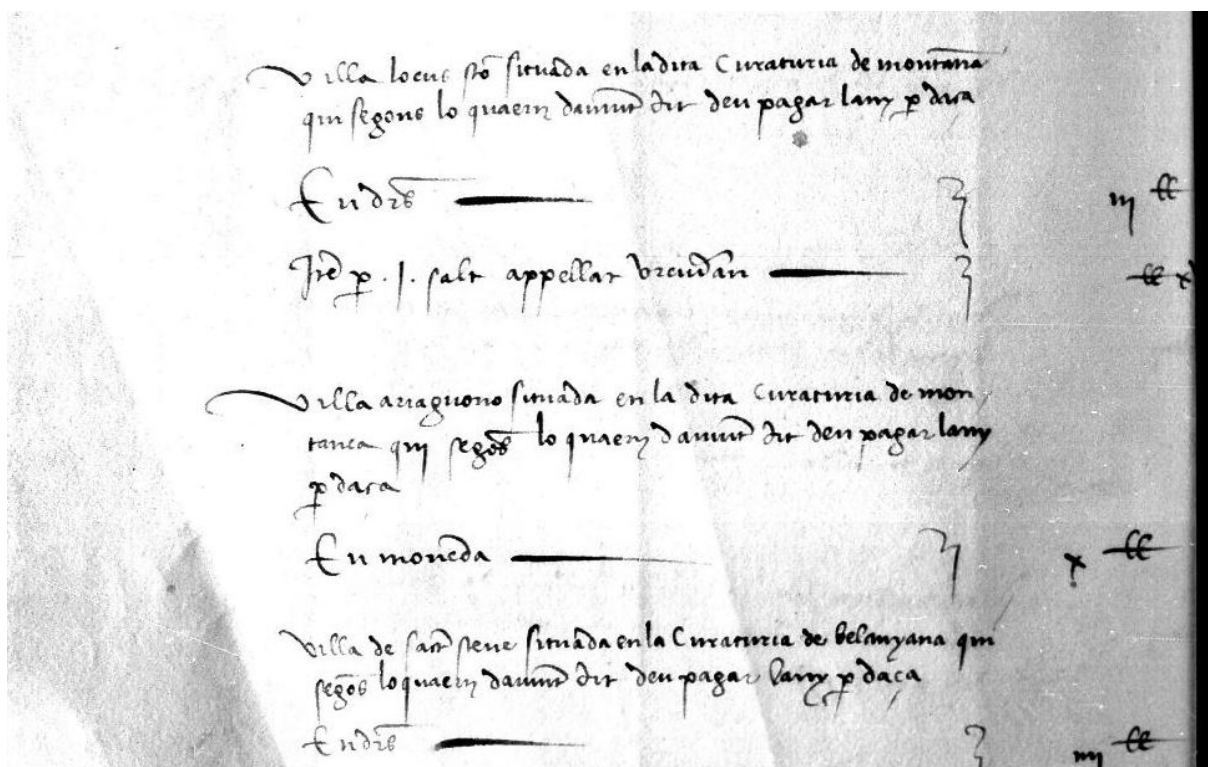 Villa locus sto situada en la dita Curaturia de montana
qui segons lo quaern damunt dit deu pagar lany p daça
En drs iij ll
Ite p .I. salt appellat ll x
Villa ariaguono situada en la dita Curaturia de mon
tanea qui segos lo quaern damunt dit deu pagar lany
p daça
En moneda x ll
Villa de sact steve situada en la Curaturia de belanyana qui
segos lo quaern damunt dit deu pagar lany p daça
En drs iiij ll